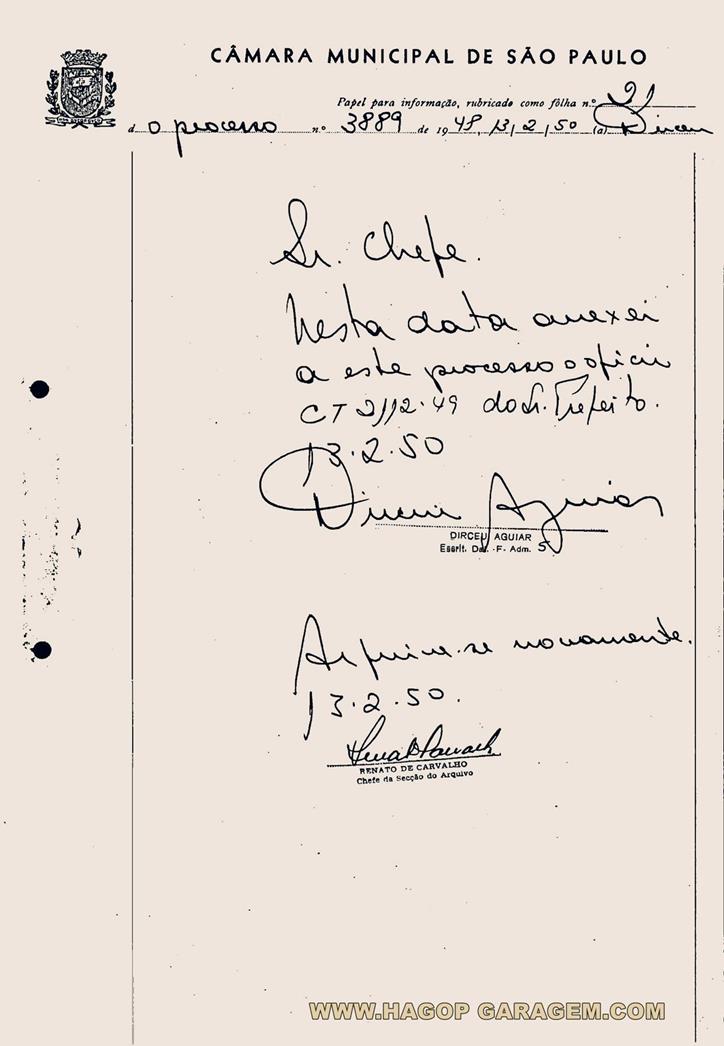 CÂMARA MUNICIPAL DE SÃO PAULO
Papel para informação, rubricado como fôlha n.º 21
d o processo n.º 3889 de 1948, 13/2/50 (a) Dirceu
Sr. Chefe.
Nesta data anexei
a este processo o oficio
CT 2112.49 do Sr. Prefeito.
13.2.50
Dirceu Aguiar
DIRCEU AGUIAR
Escrit. F. Adm. 5
Arquive-se novamente.
13.2.50.
RENATO DE CARVALHO
Chefe da Secção do Arquivo
WWW.HAGOP GARAGEM.COM